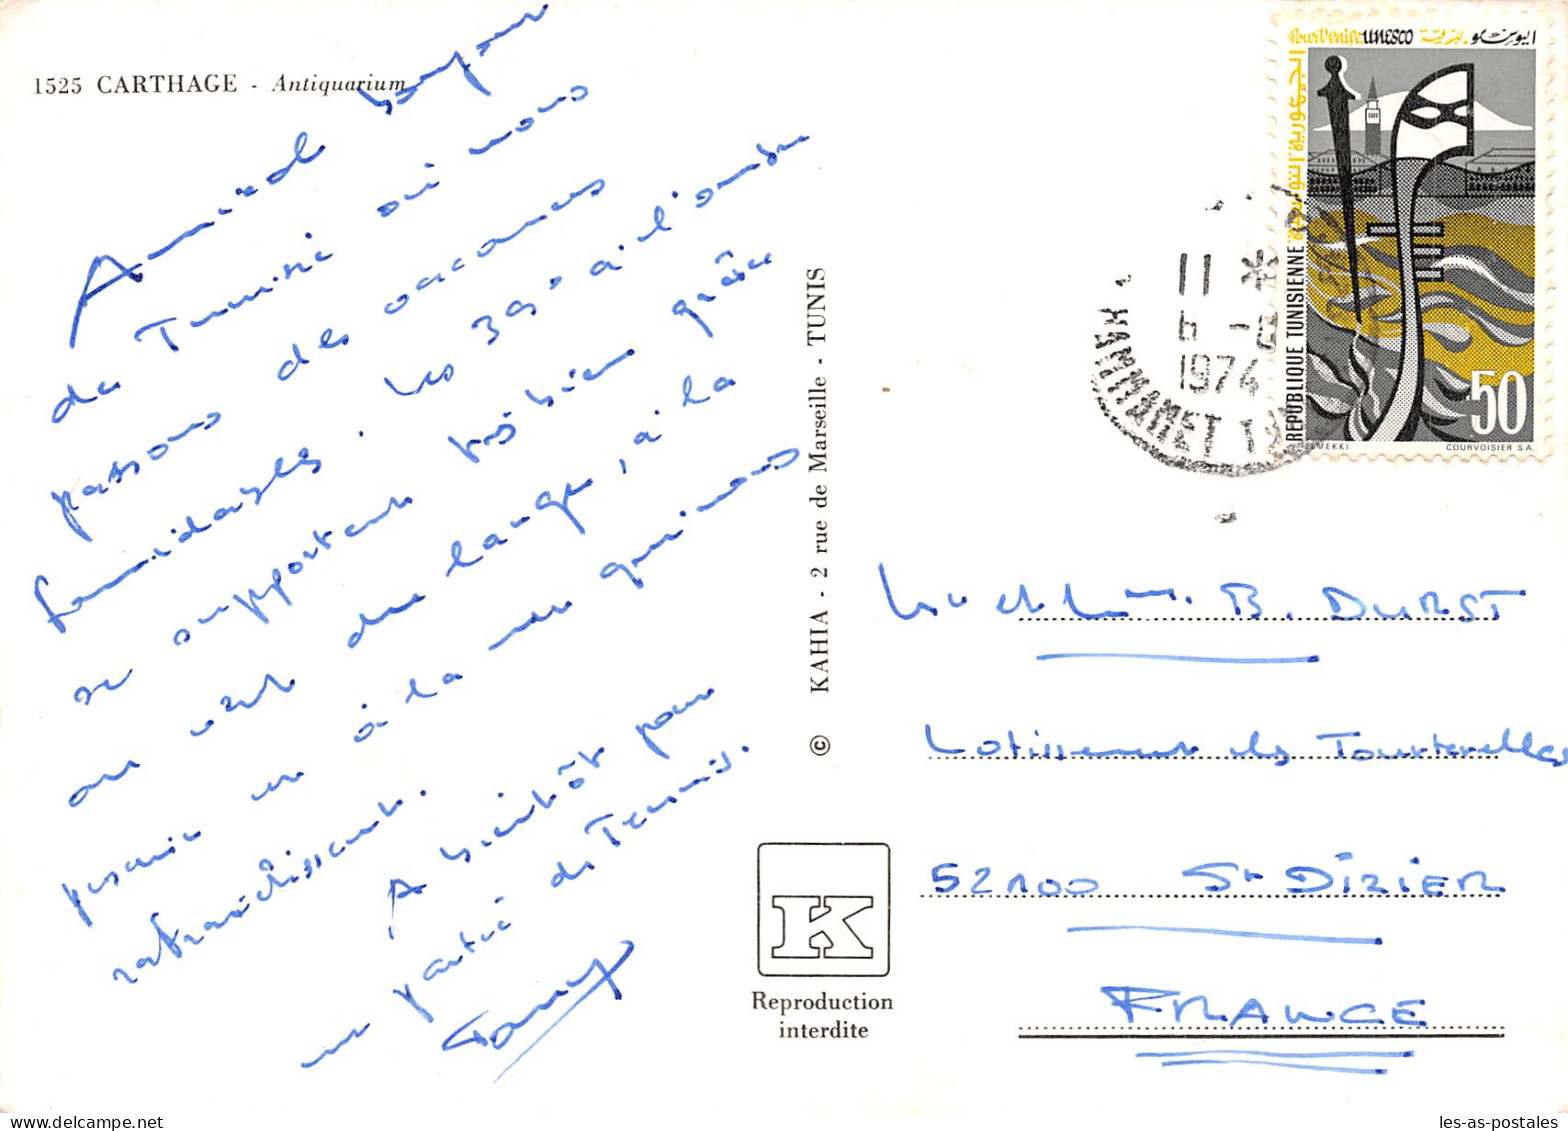 1525 CARTHAGE - Antiquarium
Amical bonjour
de Tunisie où nous
passons des vacances
formidables. Les 39° à l'ombre
se supportent très bien grâce
au vent du large, à la
et à la mer qui nous
rafraîchissent.
A bientôt pour
une partie de Tennis.
© KAHIA - 2 rue de Marseille - TUNIS
K
Reproduction
interdite
Pour Venise UNESCO اليونسكو
الجمهورية التونسية
REPUBLIQUE TUNISIENNE
50
ELMEKKI
COURVOISIER S.A.
11 *
6 -
1974
HAMMAMET
et B. DURST
Lotissement les Tourterelles
52100 St DIZIER
FRANCE
les-as-postales